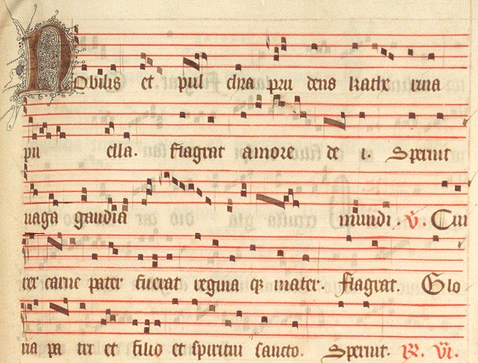 Nobilis et pul chra pru dens kathe rina
pu ella. Flagrat amore de i. Spernit
uaga gaudia mundi. v. Cui
ter carne pater fuerat regina q; mater. Flagrat. Glo
ria pa tri et filio et spiritui sancto. Spernit. R. VI.